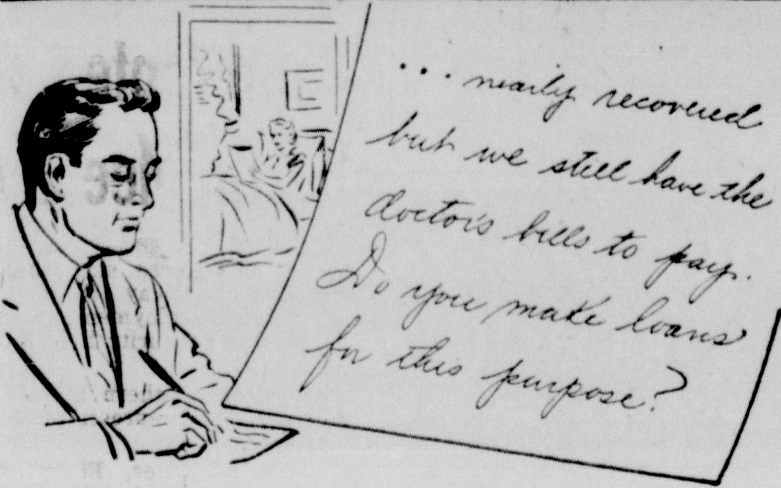 ... nearly recovered
but we still have the
doctor's bills to pay.
Do you make loans
for this purpose?